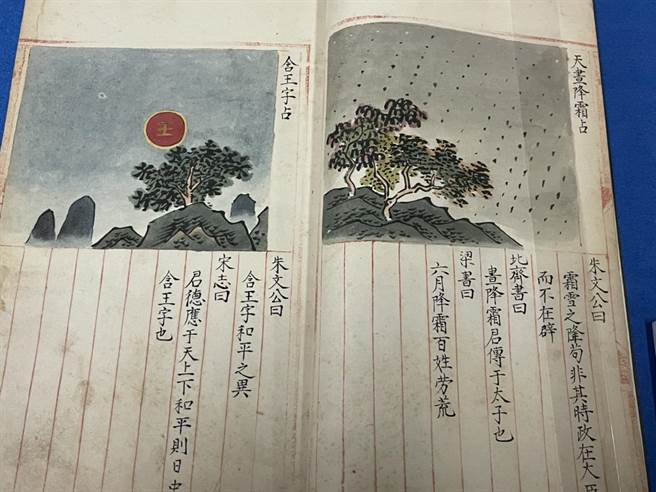 天晝降霜占
朱文公曰
霜雪之降苟非其時政在大臣
而不在辟
北齊書曰
晝降霜君傳于太子也
梁書曰
六月降霜百姓劳荒
含王字占
王
朱文公曰
含王字和平之異
宋志曰
君德應于天上下和平則日中
含王字也